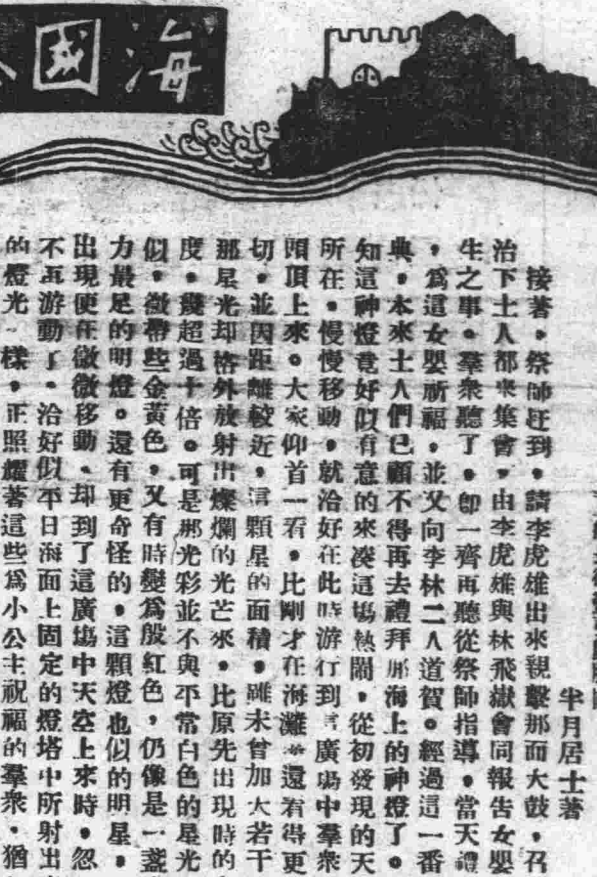 海國
半月居士著
接著，祭師赶到，請李虎雄出來親擊那面大鼓，召
治下士人都來集會，由李虎雄與林飛獄會同報告女嬰
生之事。羣衆聽了，卽一齊再聽從祭師指導，當天禮
，爲這女嬰祈福，並又向李林二人道賀。經過這一番
典，本來士人們已顧不得再去禮拜那海上的神燈了。
知這神燈竟好似有意的來湊這塲熱鬧，從初發現的天
所在，慢慢移動，就洽好在此時游行到這廣塲中羣衆
頭頂上來。大家仰首一看，比剛才在海灘上還看得更
切，並因距離較近，這顆星的面積，雖未曾加大若干
那星光却格外放射出燦爛的光芒來，比原先出現時的
度，幾超過十倍。可是那光彩並不與平常白色的星光
似，微帶些金黃色，又有時變爲殷紅色，仍像是一盞
力最足的明燈。還有更奇怪的，這顆燈也似的明星，
出現便在微微移動，却到了這廣塲中天空上來時，忽
不再游動了。洽好似平日海面上固定的燈塔中所射出
的燈光一樣，正照耀著這些爲小公主祝福的羣衆，猶